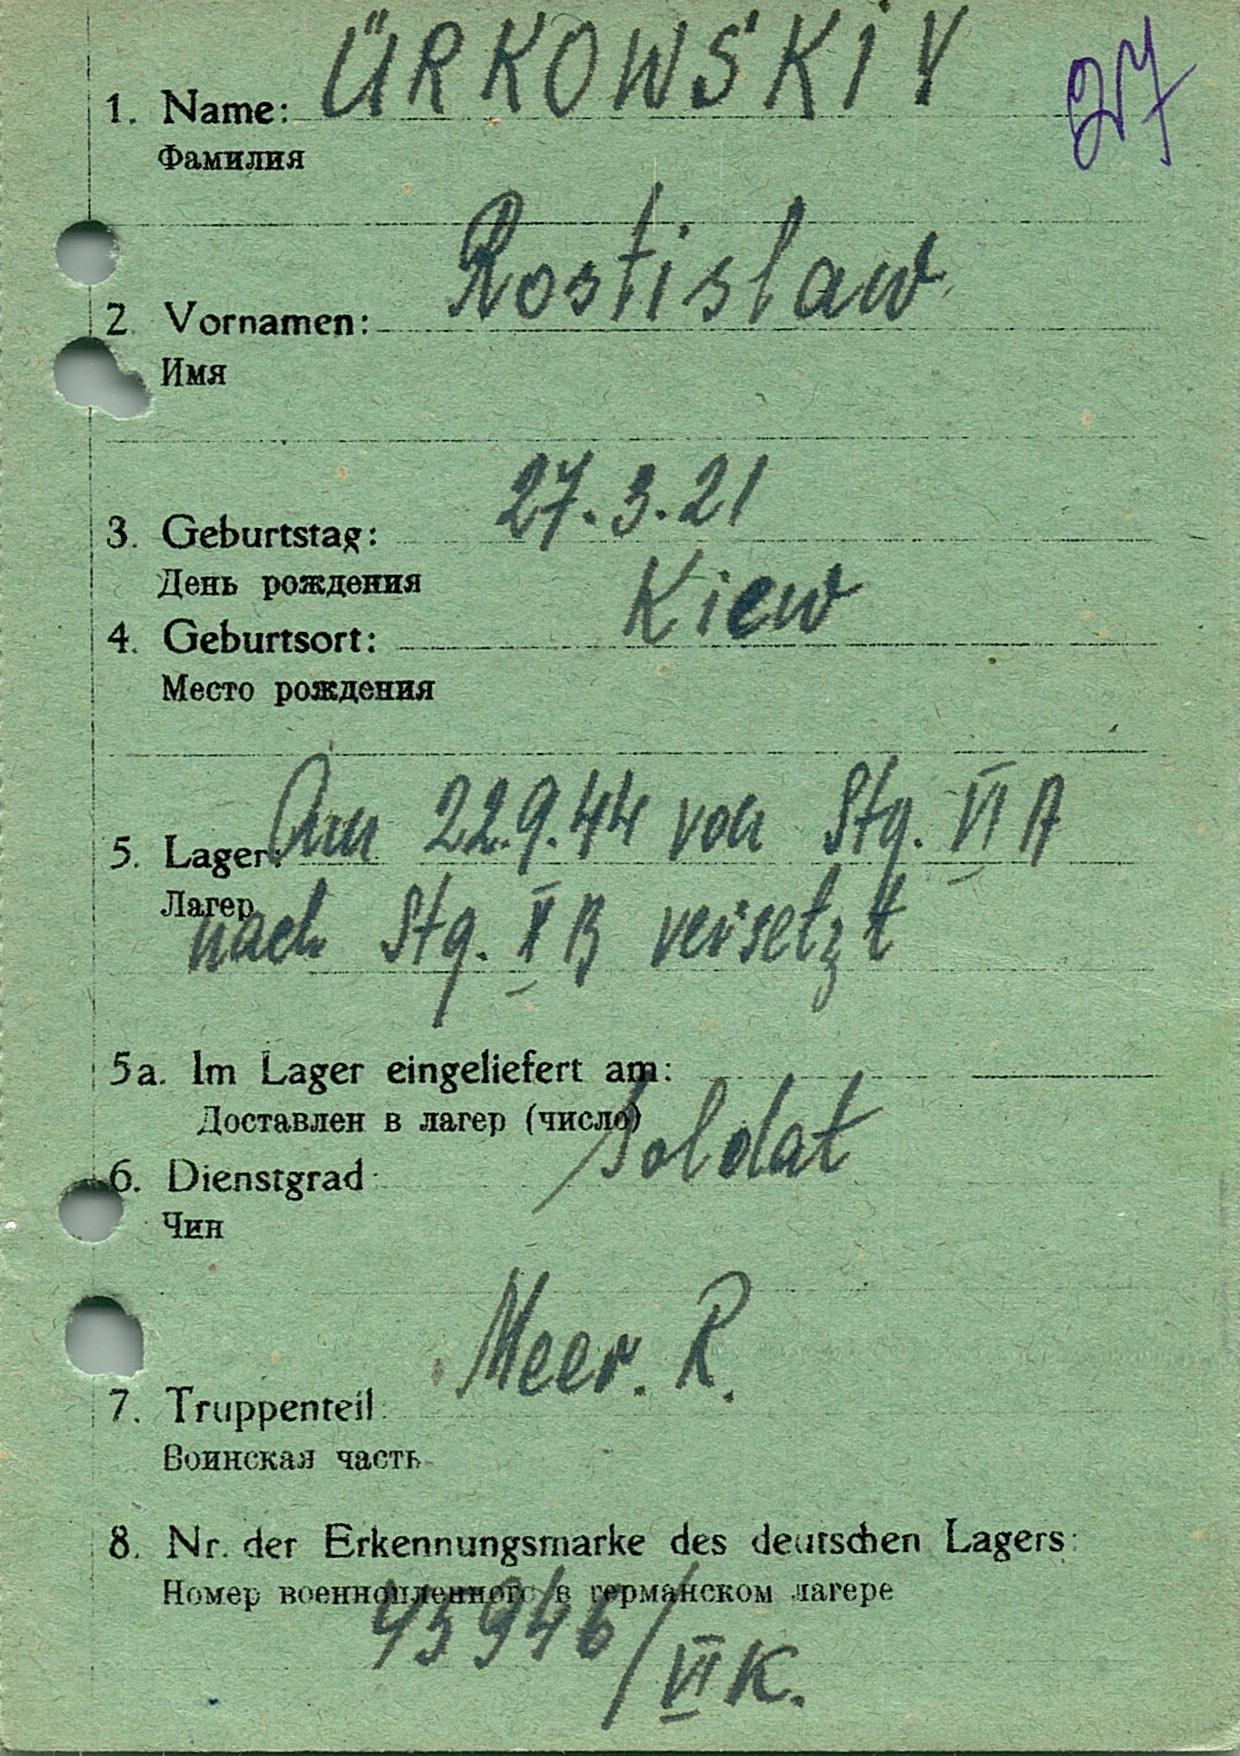 ÜRKOWSKIY 27
1. Name:
Фамилия
Rostislaw
2. Vornamen:
Имя
27.3.21
3. Geburtstag:
День рождения
Kiew
4. Geburtsort:
Место рождения
5. Lager: Am 22.9.44 von Stg. VI A
Лагер
nach Stg. X B versetzt
5a. Im Lager eingeliefert am:
Доставлен в лагер (число)
Soldat
6. Dienstgrad
Чин
Meer. R.
7. Truppenteil
Воинская часть
8. Nr. der Erkennungsmarke des deutschen Lagers:
Номер военнопленного в германском лагере
45946/VI K.